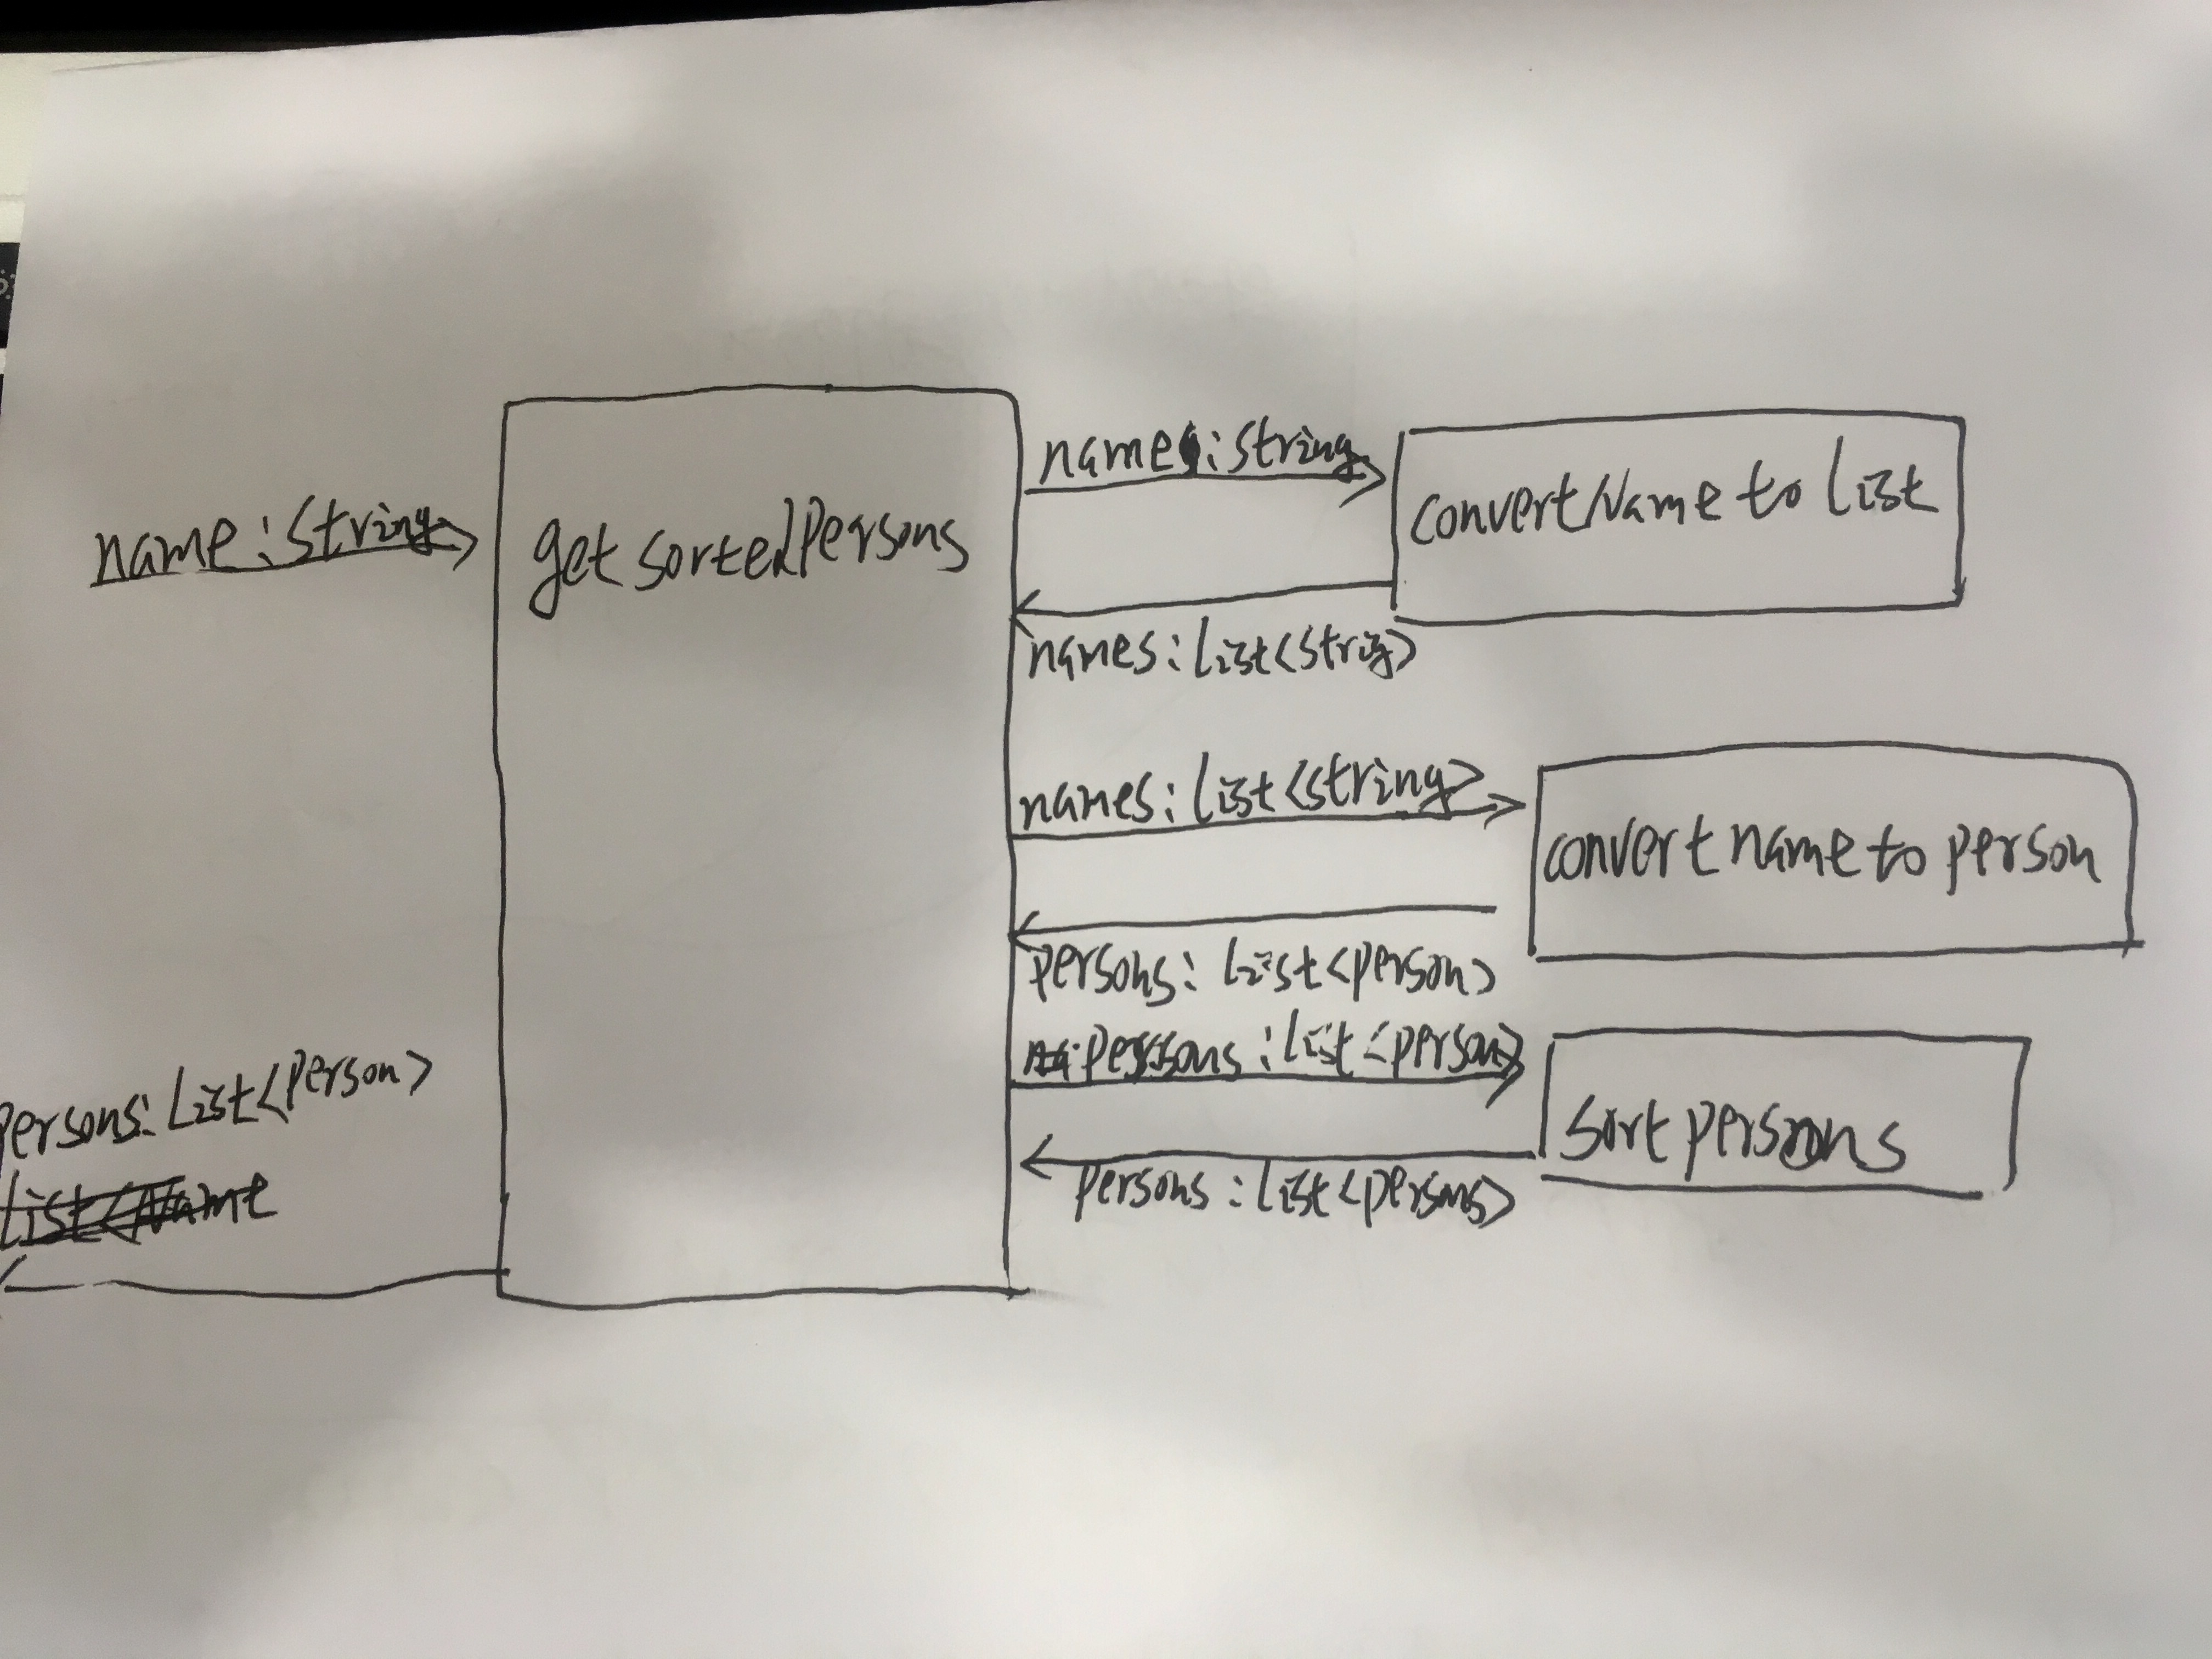 name:String
getsortedPersons
name:string
convertName to list
names:list<strig>
names:list<string>
convert name to person
persons:list<person>
persons:list<person>
sort persons
persons:list<persons>
persons:List<Person>
List<Name